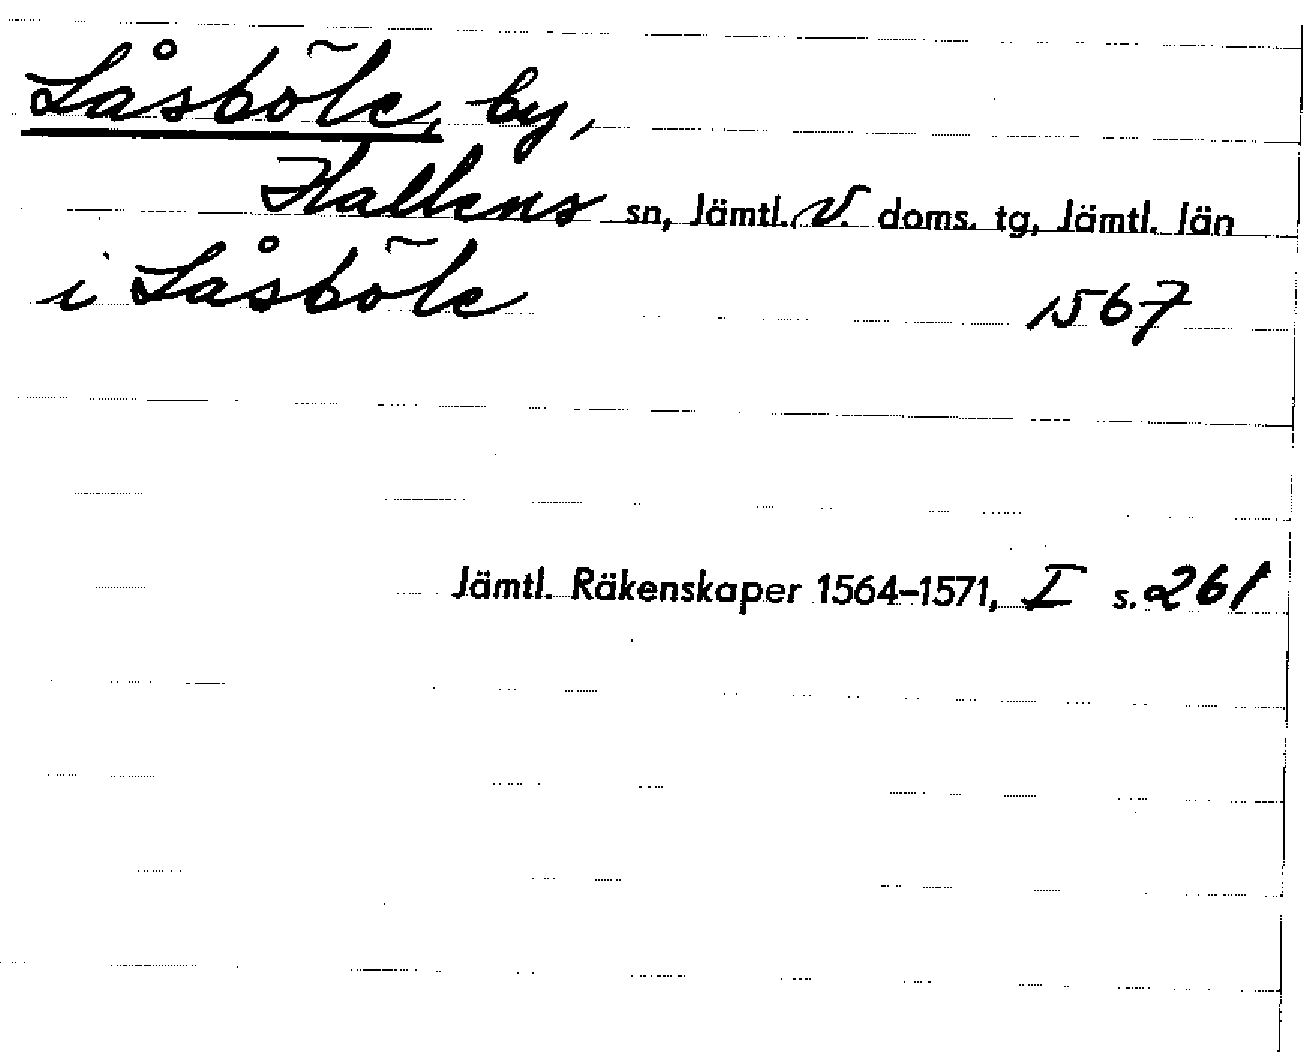 Låsböle, by,
Hallens sn, Jämtl. V. doms. tg, Jämtl. län
i Låsböle 1567
Jämtl. Räkenskaper 1564–1571, I s. 261